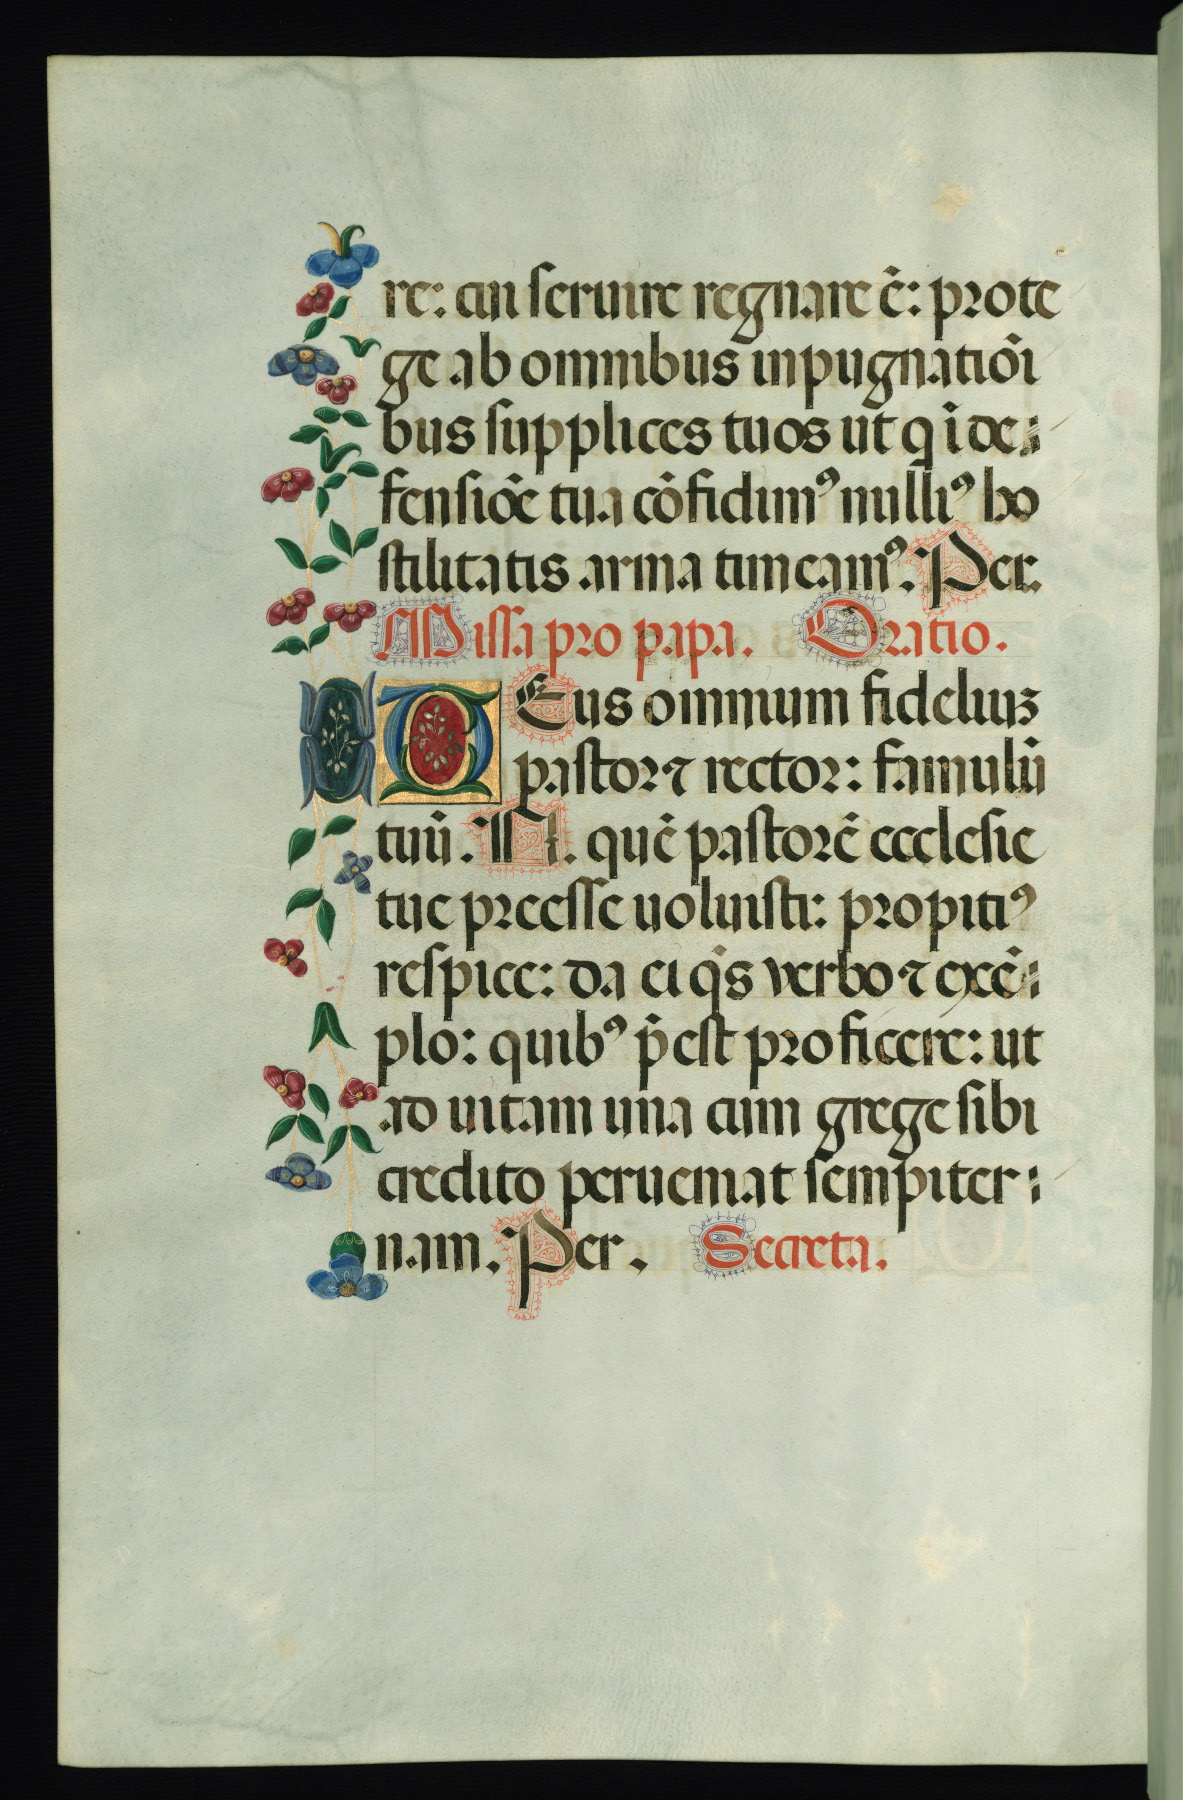 re: cui seruire regnare ē: prote
ge ab omnibus inpugnatiōi
bus supplices tuos ut qi de⸗
fensiōe tua cōfidimꝰ nulliꝰ ho
stilitatis arma timeamꝰ. Per.
Missa pro papa. Oratio.
DEus omnium fideliuꝫ
pastor ⁊ rector: famulū
tuū. N. quē pastorē ecclesie
tue preesse uoluisti: propitiꝰ
respice: da ei q̄s verbo ⁊ exē⸗
plo: quibꝰ p̄est proficere: ut
ad uitam una cum grege sibi
credito perueniat sempiter⸗
nam. Per. Secreta.